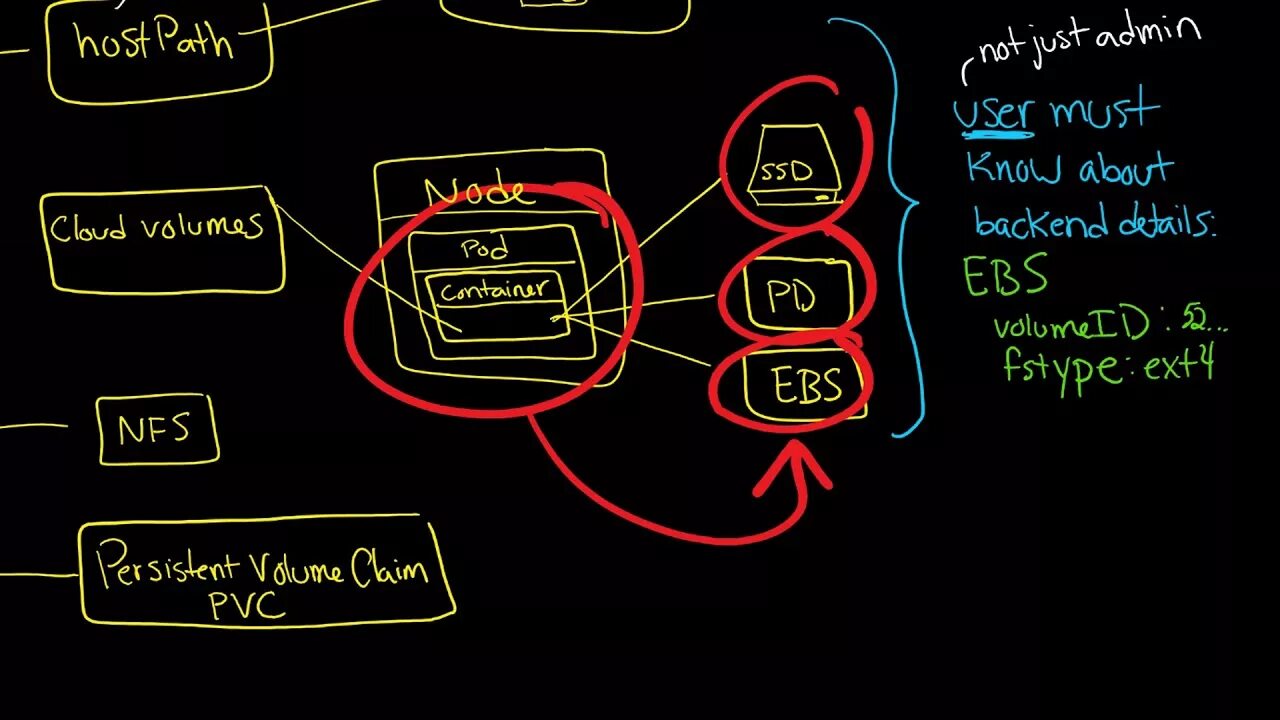 hostPath
not just admin
user must
Know about
backend details:
EBS
volumeID: 52...
fstype: ext4
Node
Pod
Container
SSD
PD
EBS
Cloud volumes
NFS
Persistent Volume Claim
PVC